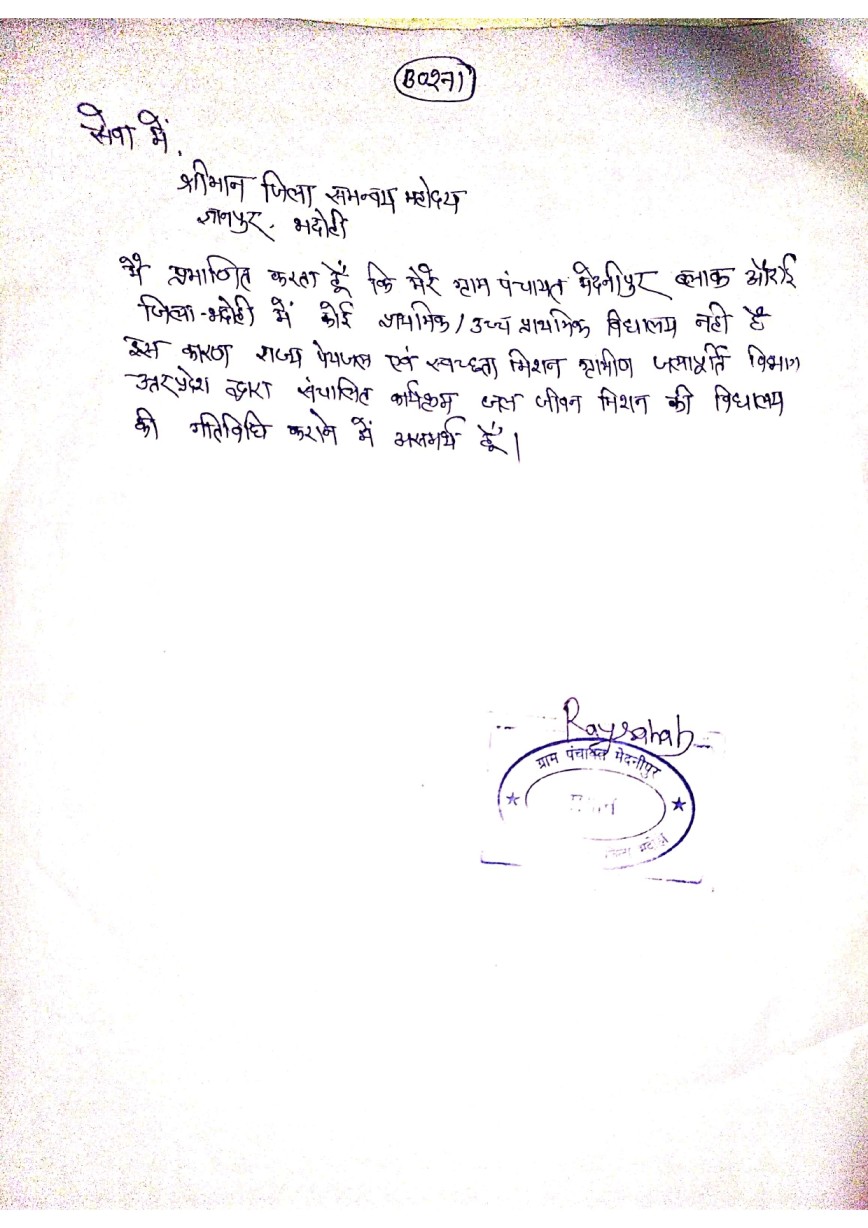 सेवा में,
श्रीमान जिला समन्वय महोदय
ज्ञानपुर, भदोही
मै प्रमाणित करता हूँ कि मेरे ग्राम पंचायत मेदनीपुर ब्लाक औराई
जिला-भदोही में कोई प्राथमिक/उच्च प्राथमिक विद्यालय नही है
इस कारण राज्य पेयजल एवं स्वच्छता मिशन ग्रामीण जलापूर्ति विभाग
उत्तरप्रदेश द्वारा संचालित कार्यक्रम जल जीवन मिशन की विद्यालय
की गतिविधि कराने में असमर्थ हूँ।
Raysahab
ग्राम पंचायत मेदनीपुर